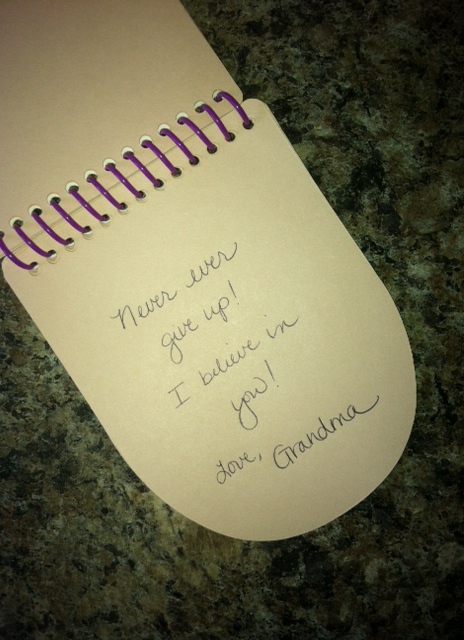 Never ever
give up!
I believe in
you!
Love, Grandma